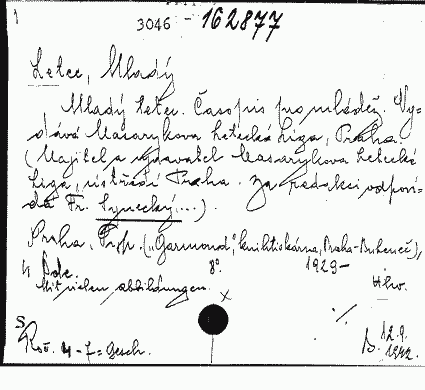 1
3046 - 162877
Letec, Mladý
Mladý letec. Časopis pro mládež. Vy-
dává Masarykova letecká liga, Praha.
(Majitel a vydavatel Masarykova letecká
liga, ústředí Praha. Za redakci odpoví-
dá Fr. ...).
Praha, Typ. („Garmond", knihtiskárna, Praha-Bubeneč),
4 8º. 1929-
Mit vielen Abbildungen.
x
S
Roč. 4-7 = Gesch. B. 12.9.
1942.